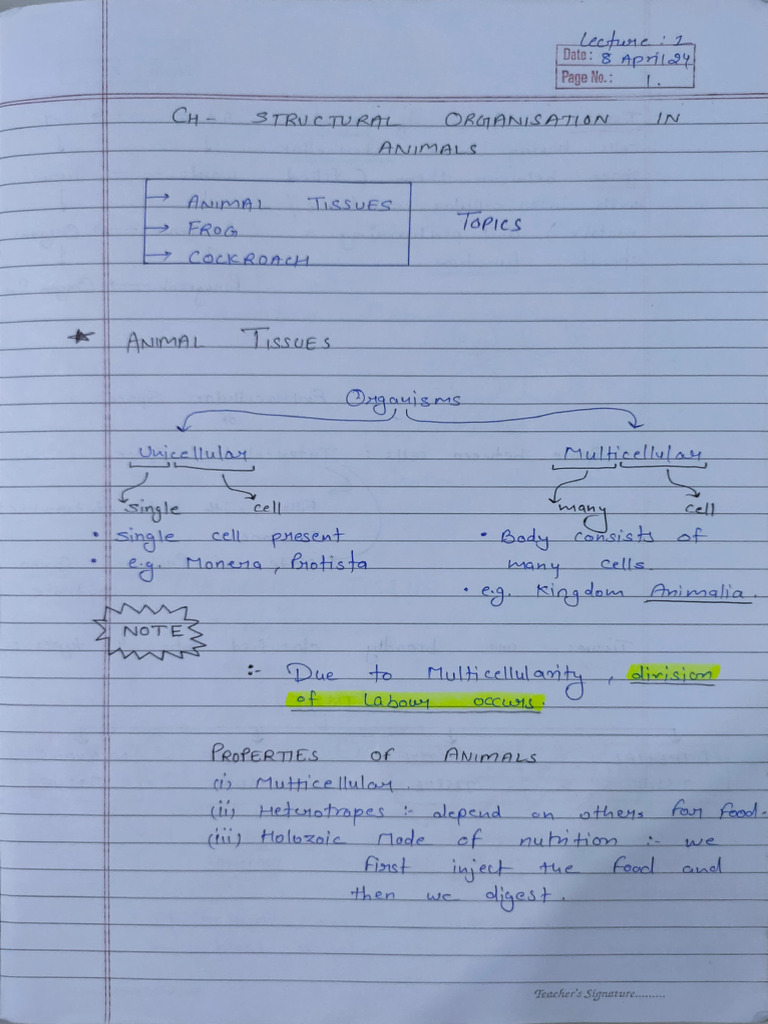 Lecture : 1
Date: 8 April 24
Page No.: 1.
CH - STRUCTURAL ORGANISATION IN
ANIMALS
→ ANIMAL TISSUES
→ FROG
→ COCKROACH
TOPICS
★ ANIMAL TISSUES
Organisms
Unicellular Multicellular
single cell many cell
• single cell present
• e.g. Monera, Protista
• Body consists of
many cells.
• e.g. Kingdom Animalia.
NOTE
:- Due to Multicellularity, division
of labour occurs.
PROPERTIES OF ANIMALS
(i) Multicellular.
(ii) Heterotropes :- depend on others for food.
(iii) Holozoic Mode of nutrition :- we
first inject the food and
then we digest.
Teacher's Signature.........